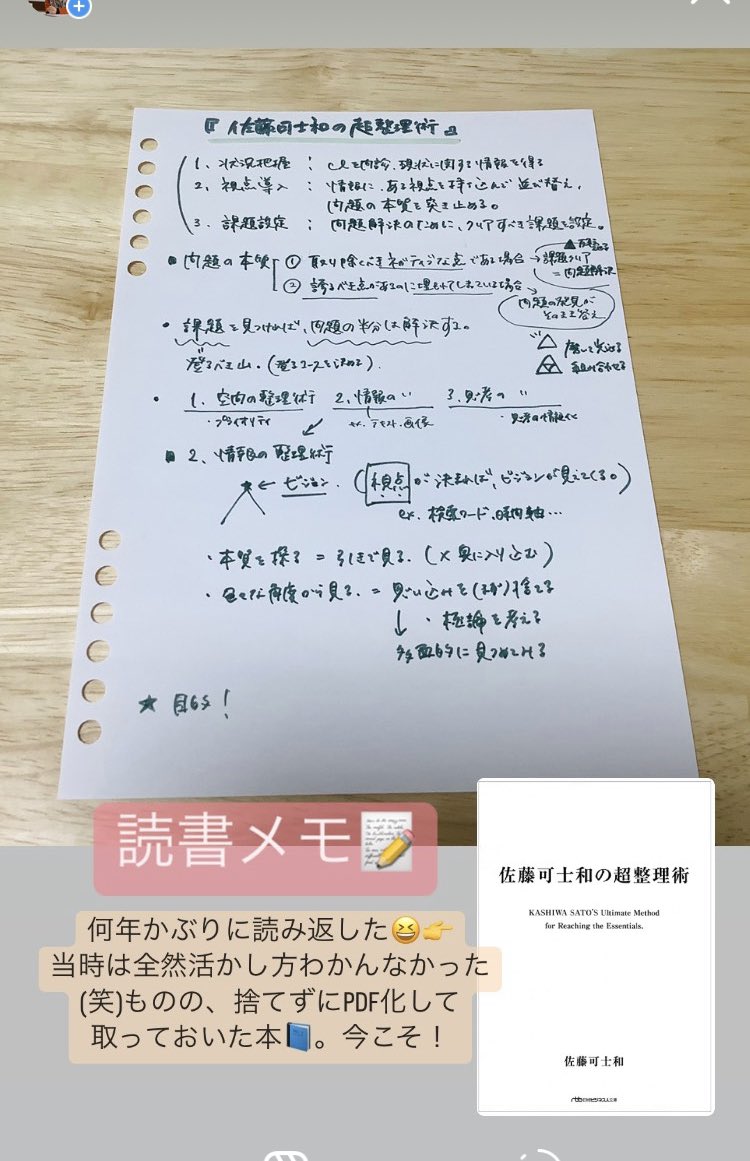 『佐藤可士和の超整理術』
1、状況把握 ; CLを問診、現状に関する情報を得る
2、視点導入 ; 情報に、ある視点を持ち込んで並び替え、
問題の本質を突き止める。
3、課題設定 ; 問題解決のために、クリアすべき課題を設定。
■ 問題の本質
① 取り除くべきネガティブな点である場合 → 課題クリア
= 問題解決
② 誇るべき点があるのに埋もれてしまっている場合
問題の発見が
そのまま答え
・課題を見つければ、問題の半分は解決する。
登るべき山。(登るコースを決める)
磨いて光らせる
組み合わせる
・ 1、空間の整理術 2、情報の 〃 3、思考の 〃
・プライオリティ ex. テキスト、画像 ・思考の情報化
■ 2、情報の整理術
← ビジョン、(視点が決まれば、ビジョンが見えてくる。)
ex. 検索ワード、時間軸…
・本質を探る = 引きで見る。(× 奥に入り込む)
・色々な角度から見る。= 思い込みを(まず)捨てる
↓ ・極論を考える
多面的に見つめてみる
★ 目的!
読書メモ📝
何年かぶりに読み返した😆👉
当時は全然活かし方わかんなかった
(笑)ものの、捨てずにPDF化して
取っておいた本📘。今こそ!
佐藤可士和の超整理術
KASHIWA SATO'S Ultimate Method
for Reaching the Essentials.
佐藤可士和
日経ビジネス人文庫